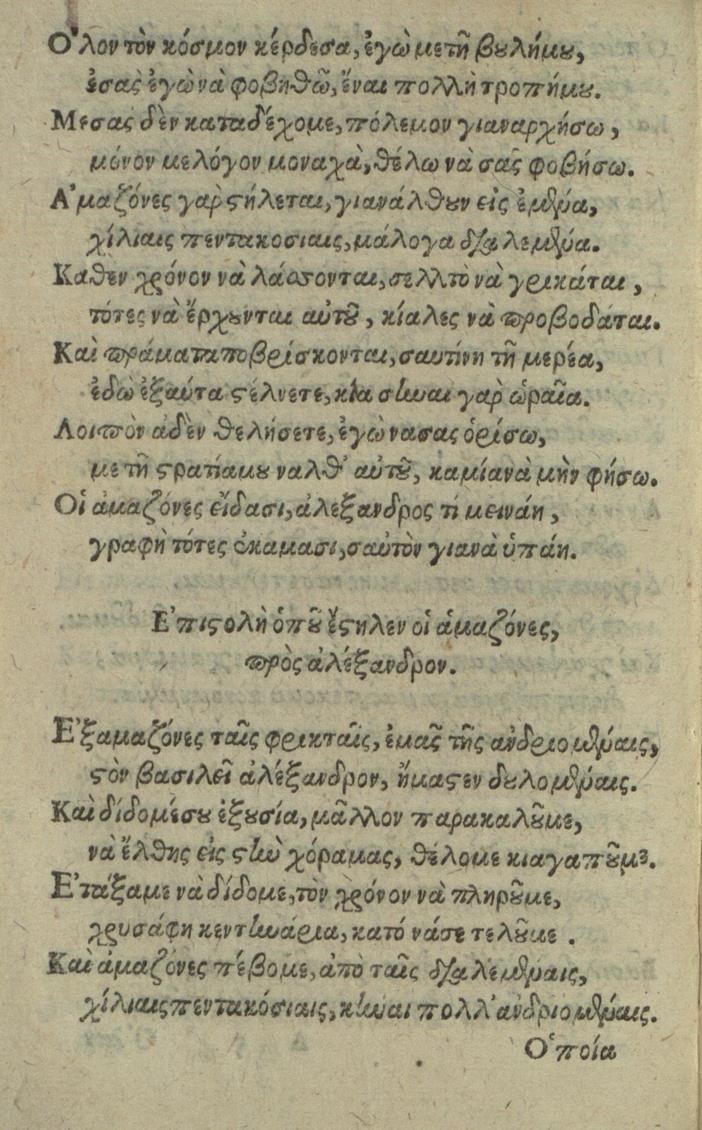 Ο῞λον τὸν κόσμον κέρδεσα, ἐγὼ μετῆ βουλήμου,
ἐσας ἐγὼ νὰ φοβηθῶ, ἔναι πολλὴ τροπήμου.
Μεσας δὲν καταδέχομε, πόλεμον γιαναρχήσω,
μόνον μελόγον μοναχὰ, θέλω νὰ σᾶς φοβήσω.
Α᾿μαζόνες γαρ στήλεται, γιανάλθουν εἰς ἐμένα,
χίλιαις πεντακοσιαις, μάλογα διαλεμένα.
Καθεν χρόνον νὰ λάσσονται, σελλτὸ νὰ γρικάται,
τότες νὰ ἔρχουνται αὐτοῦ, κίαλες νὰ προβοδάται.
Καὶ πράματα ποβρίσκονται, σαυτίνη τῆ μερέα,
ἐδὼ ἐξαύτα στέλνετε, κια σῆναι γαρ ὡραῖα.
Λοιπὸν ἀδὲν θελήσετε, ἐγὼ νασας ὁρίσω,
με τῆ στρατίαμου ναλθ᾿ αὐτοῦ, καμίανὰ μὴν φήσω.
Οἱ ἀμαζόνες εἴδασι, ἀλεξανδρος τί μεινάη,
γραφὴ τότες ἐκαμασι, σαυτὸν γιανὰ ὑπάη.
Ε᾿πιστολὴ ὁποῦ ἔστηλεν οἱ ἀμαζόνες,
πρὸς ἀλέξανδρον.
Ε᾿ξαμαζόνες ταῖς φρικταῖς, ἐμᾶς τῆς ἀνδριομέναις,
στὸν βασιλεῖ ἀλέξανδρον, ἤμαστεν δουλομέναις.
Καὶ δίδομέσου ἐξουσία, μᾶλλον παρακαλοῦμε,
νὰ ἔλθης εἰς στὴν χόραμας, θέλομε κιαγαποῦμε.
Ε᾿τάξαμε νὰ δίδομε, τὸν χρόνον νὰ πληροῦμε,
χρυσάφη κεντηνάρια, κατό νάσε τελοῦμε.
Καὶ ἀμαζόνες πέβομε, ἀπὸ ταῖς διαλεμέναις,
χίλιαις πεντακόσιαις, κῆναι πολλ᾿ ἀνδριομέναις.
Ο῾ποία